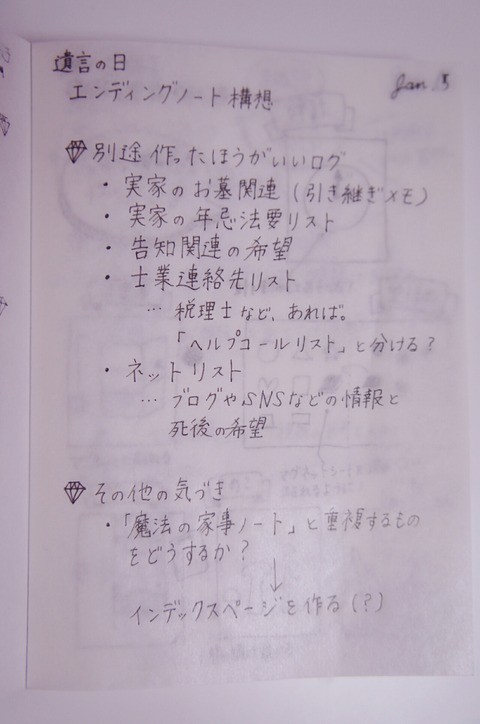 遺言の日
Jan 15
エンディングノート構想
別途作ったほうがいいログ
・実家のお墓関連(引き継ぎメモ)
・実家の年忌法要リスト
・告知関連の希望
・士業連絡先リスト
… 税理士など、あれば。
「ヘルプコールリスト」と分ける?
・ネットリスト
… ブログやSNSなどの情報と
死後の希望
その他の気づき
・「魔法の家事ノート」と重複するもの
をどうするか?
↓
インデックスページを作る(?)